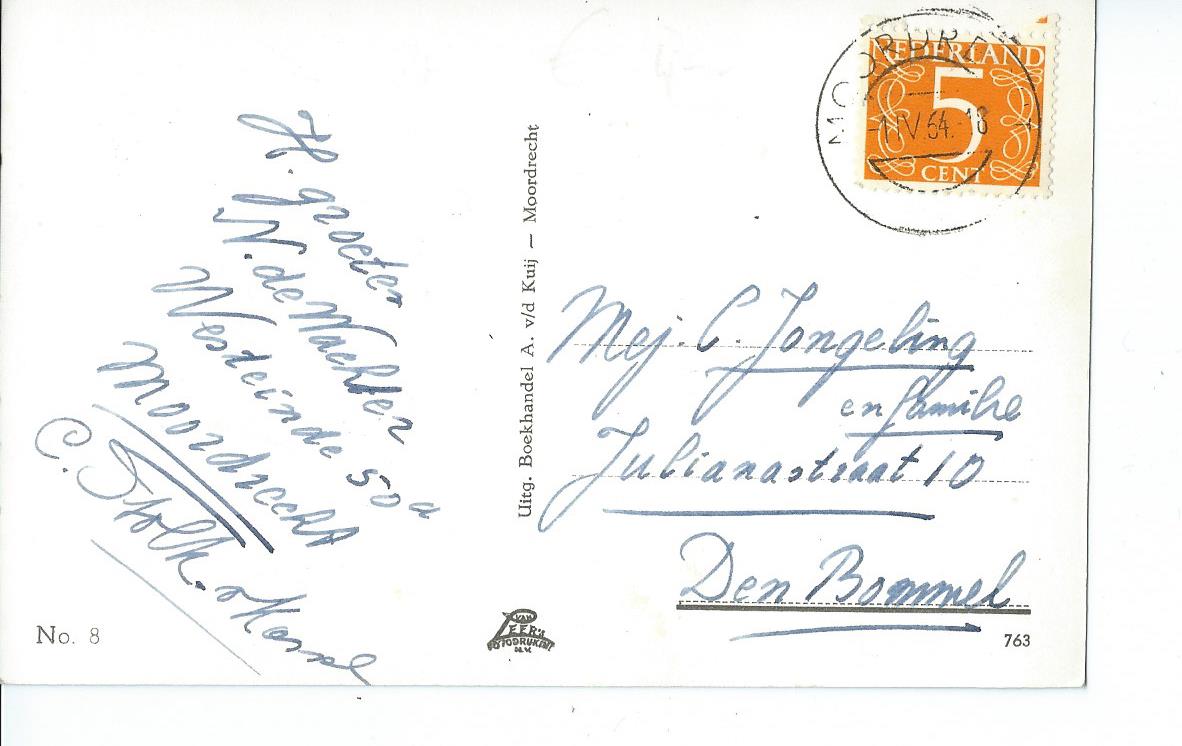 H. groeten
N. de Wachter
Westeinde 50a
Moordrecht
C. Stolk.
No. 8
Uitg. Boekhandel A. v/d Kuij — Moordrecht
VAN LEER's FOTODRUKIND N.V.
MOORDRECHT
-1 IV. 54. 18
NEDERLAND
5
CENT
Mej. C. Jongeling
en familie
Julianastraat 10
Den Bommel
763